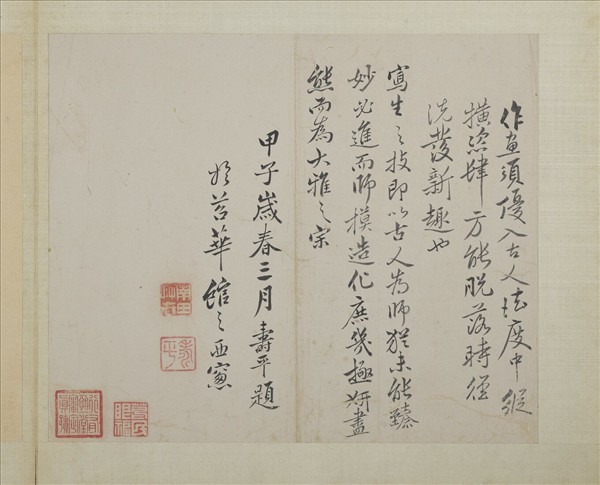 作畫須優入古人法度中縱
橫恣肆方能脫落時徑
洗發新趣也
寫生之技即以古人為師猶未能臻
妙必進而師摸造化庶幾極妍盡
態而為大雅之宗
甲子歲春三月壽平題
於苕華館之西窗
壽平